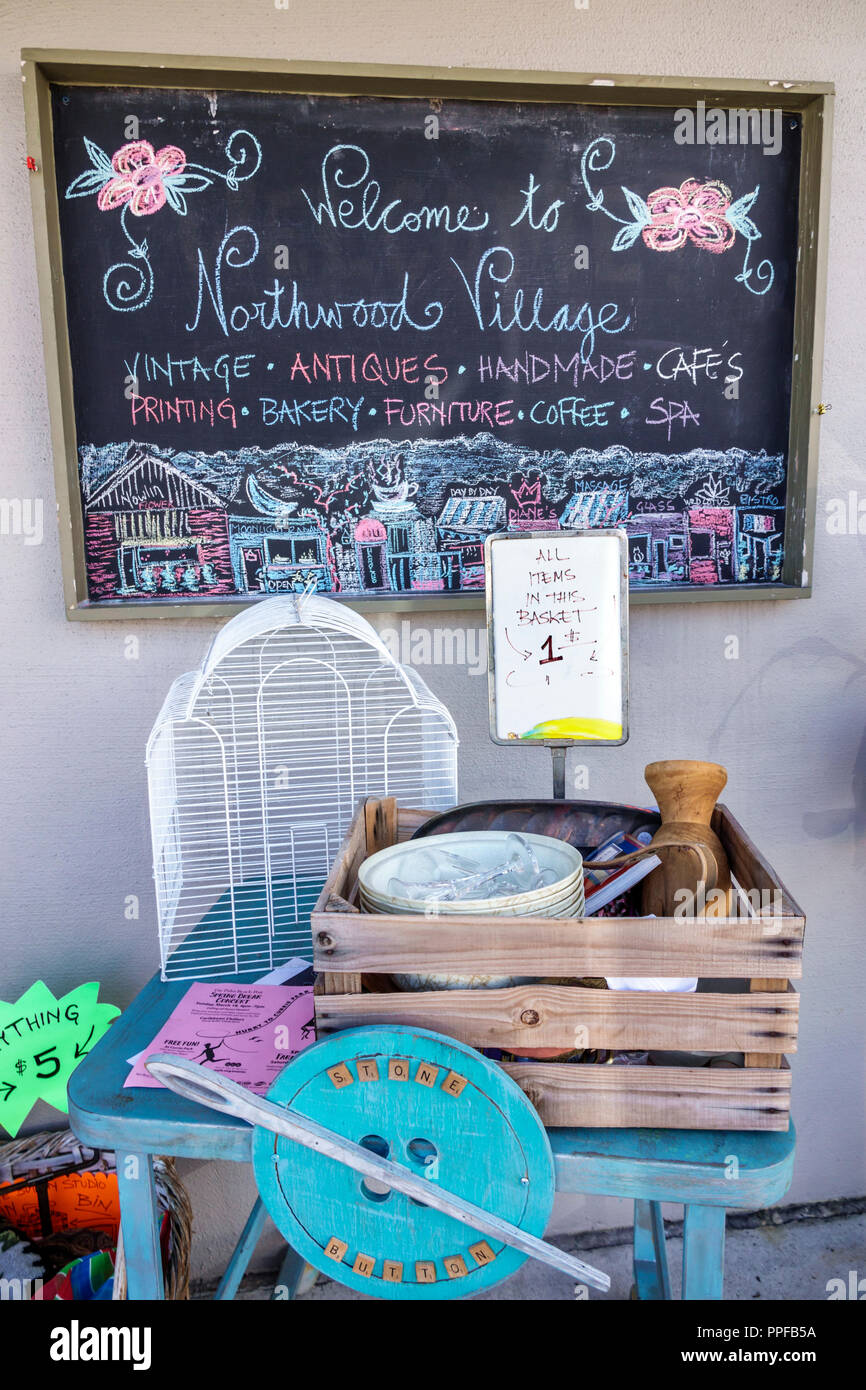 Welcome to
Northwood Village
VINTAGE • ANTIQUES • HANDMADE • CAFÉ'S
PRINTING • BAKERY • FURNITURE • COFFEE • SPA
FLOWER
OPEN
DAY BY DAY
DIANE'S
MASSAGE
GLASS
BISTRO
ALL
ITEMS
IN THIS
BASKET
1$
SPRING BREAK
CONCERT
FREE FUN!
YTHING
$5
BIN
STONE
BUTTON
alamy
Image ID: PPFB5A
www.alamy.com